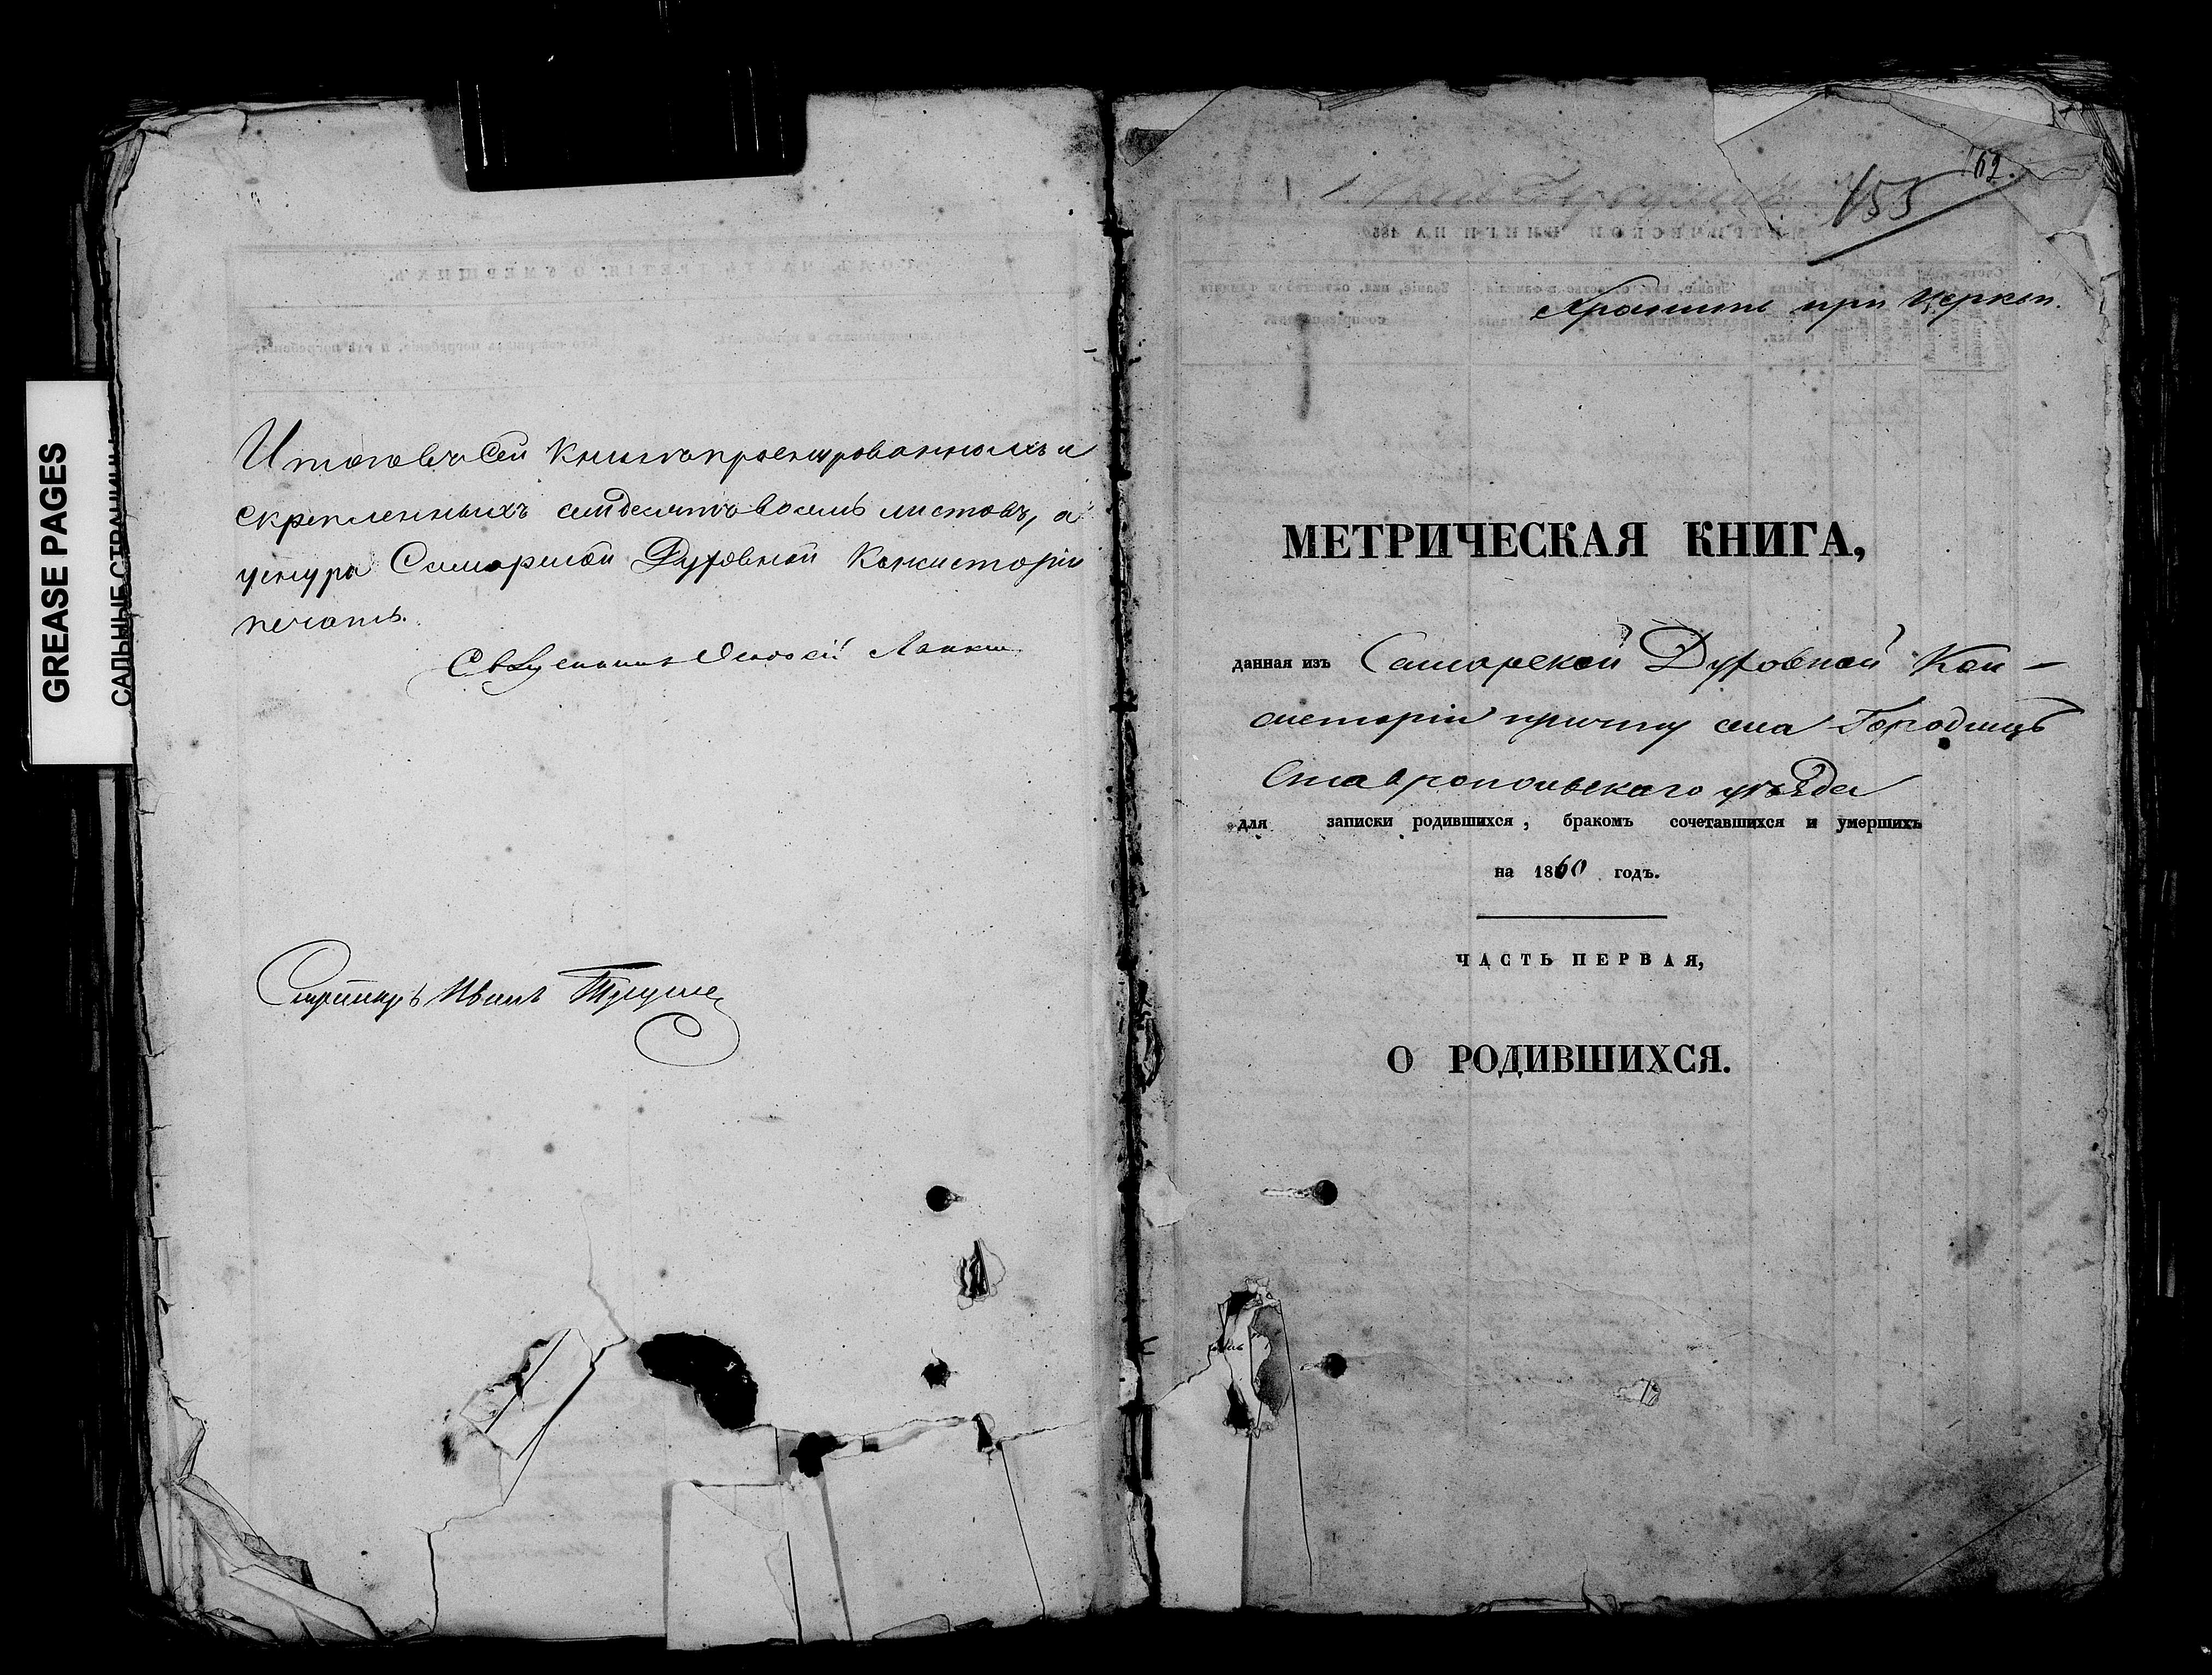 GREASE PAGES
САЛЬНЫЕ СТРАНИЦЫ
Итого въ сей книгѣ прошнурованныхъ и
скрепленныхъ листовъ, а
у шнура Самарской Духовной Консисторіи
печать.
Священникъ
Иванъ
162.
155
Хранить при Церкви.
МЕТРИЧЕСКАЯ КНИГА,
данная изъ Самарской Духовной Кон-
систоріи причту села Городищъ
Ставропольскаго уѣзда
для записки родившихся, бракомъ сочетавшихся и умершихъ
на 1860 годъ.
ЧАСТЬ ПЕРВАЯ,
О РОДИВШИХСЯ.